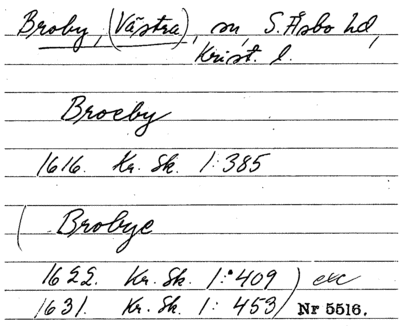 Broby, (Västra), sn, S. Åsbo hd,
Krist. l.
Broeby
1616. Kr. Sk. 1:385
( Brobye
1622. Kr. Sk. 1: 409 ) exc
1631. Kr. Sk. 1: 453 ) Nr 5516.